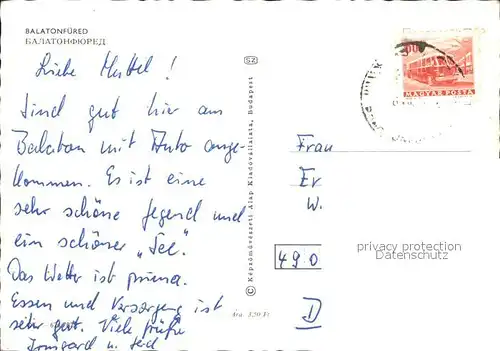 BALATONFÜRED
БАЛАТОНФЮРЕД
Liebe Muttel!
Sind gut hier am
Balaton mit Auto ange-
kommen. Es ist eine
sehr schöne Gegend und
ein schöner „See".
Das Wetter ist prima.
Essen und Versorgung ist
sehr gut. Viele Grüße
Irmgard u.
© Képzőművészeti Alap Kiadóvállalata, Budapest
MAGYAR POSTA
Frau
Er
W.
privacy protection
Datenschutz
490
D